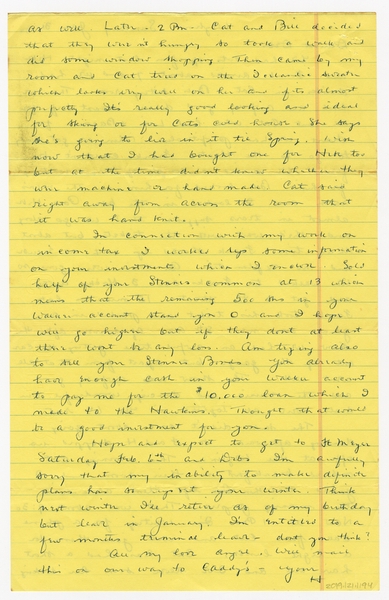 as well Later - 2 Pm - Cat and Bill decided
that they weren't hungry so took a walk and
did some window shopping. Then came by my
room and Cat tried on the Icelandic sweater
which looks very well on her and fits almost
perfectly. It's really good looking and ideal
for skiing or for Cat's cold house. She says
she's going to live in it til Spring. Wish
now that I had bought one for too
but at the time didn't know whether they
were machine or hand made. Cat said
right away from across the room that
it was hand knit.
In connection with my work on
income tax I worked up some information
on your investments which I enclose. Sold
half of your common at 13 which
means that the remaining 500 shs in your
account stand you 0 and I hope
will go higher but if they don't at least
there won't be any loss. Am trying also
to sell your Bonds. You already
have enough cash in your account
to pay me for the $10,000 loan which I
made to the Hawkins. Thought that would
be a good investment for you.
Hope and expect to get to Ft Myers
Saturday Feb. 6th and Debs I'm awfully
sorry that my inability to make definite
plans has so upset your winter. Think
next winter I'll retire as of my birthday
but leave in January. I'm entitled to a
few months terminal leave - don't you think?
All my love Will mail
this on our way to Caddy's -
H
2019.121.1194